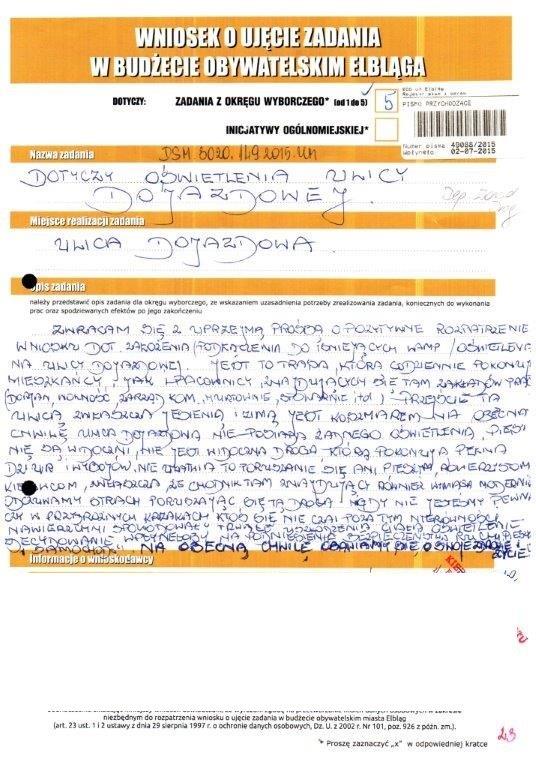 WNIOSEK O UJĘCIE ZADANIA
W BUDŻECIE OBYWATELSKIM ELBLĄGA
DOTYCZY: ZADANIA Z OKRĘGU WYBORCZEGO* (od 1 do 5) 5
PISMO PRZYCHODZĄCE
INICJATYWY OGÓLNOMIEJSKIEJ*
Numer pisma 49088/2015
Wpłynęło 02-07-2015
Nazwa zadania DSM 5020.149.2015.UM
DOTYCZY OŚWIETLENIA ULICY
DOJAZDOWEJ.
Miejsce realizacji zadania
ULICA DOJAZDOWA.
Opis zadania
należy przedstawić opis zadania dla okręgu wyborczego, ze wskazaniem uzasadnienia potrzeby zrealizowania zadania, koniecznych do wykonania
prac oraz spodziewanych efektów po jego zakończeniu
ZWRACAM SIĘ Z UPRZEJMĄ PROŚBĄ O POZYTYWNE ROZPATRZENIE
WNIOSKU DOT. ZAŁOŻENIA (PODŁĄCZENIA DO ISTNIEJĄCYCH LAMP) OŚWIETLENIA
NA ULICY DOJAZDOWEJ. JEST TO TRASA, KTÓRĄ CODZIENNIE POKONUJĄ
MIESZKAŃCY, JAK I PRACOWNICY, ZNAJDUJĄCYCH SIĘ TAM ZAKŁADÓW
ZARZĄD KOM., STOLARNIE itd.) PRZEJŚCIE TĄ
ULICĄ ZWŁASZCZA JESIENIĄ I ZIMĄ JEST KOSZMAREM. NA OBECNĄ
CHWILĘ ULICA DOJAZDOWA NIE POSIADA ŻADNEGO OŚWIETLENIA, PIESI
NIE SĄ WIDOCZNI, NIE JEST WIDOCZNA DROGA KTÓRĄ POKONUJĄ PEŁNA
DZIUR I WYBOJÓW, NIE UŁATWIA TO PORUSZANIE SIĘ ANI PIESZYM, ROWERZYSTOM
KIEROWCOM, ZWŁASZCZA ŻE CHODNIK TAM ZNAJDUJĄCY RÓWNIEŻ WYMAGA
STRACH PORUSZAJĄC SIĘ TĄ DROGĄ, NIGDY NIE JESTEŚMY PEWNI
CZY W PRZYDROŻNYCH KRZAKACH KTOŚ SIĘ NIE CZAI POZA TYM NIERÓWNOŚCI
NAWIERZCHNI SPOWODOWAŁY OŚWIETLENIE
ZDECYDOWANIE WPŁYNĘŁOBY NA PODNIESIENIE BEZPIECZEŃSTWA RUCHU
NA OBECNĄ CHWILĘ OBAWIAMY SIĘ O SWOJE ZDROWIE I
ŻYCIE
Informacje o wnioskodawcy
niezbędnym do rozpatrzenia wniosku o ujęcie zadania w budżecie obywatelskim miasta Elbląg
(art. 23 ust. 1 i 2 ustawy z dnia 29 sierpnia 1997 r. o ochronie danych osobowych, Dz. U. z 2002 r. Nr 101, poz. 926 z późn. zm.).
* Proszę zaznaczyć „x” w odpowiedniej kratce